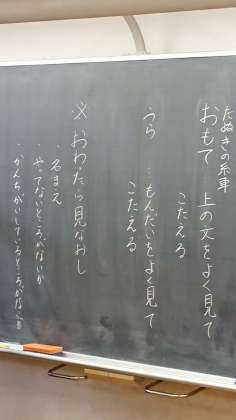 たぬきの糸車
おもて 上の文をよく見て
こたえる
うら …もんだいをよく見て
こたえる
※おわたら見なおし
・名まえ
・やってないところがないか
・かんちがいしているところがないか